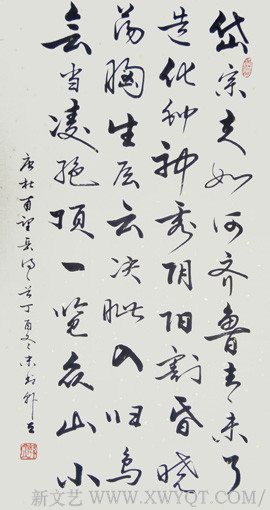 岱宗夫如何齐鲁青未了
造化钟神秀阴阳割昏晓
荡胸生层云决眦入归鸟
会当凌绝顶一览众山小
唐杜甫望岳诗一首丁酉冬
新文艺 / WWW.XWYQT.COM/